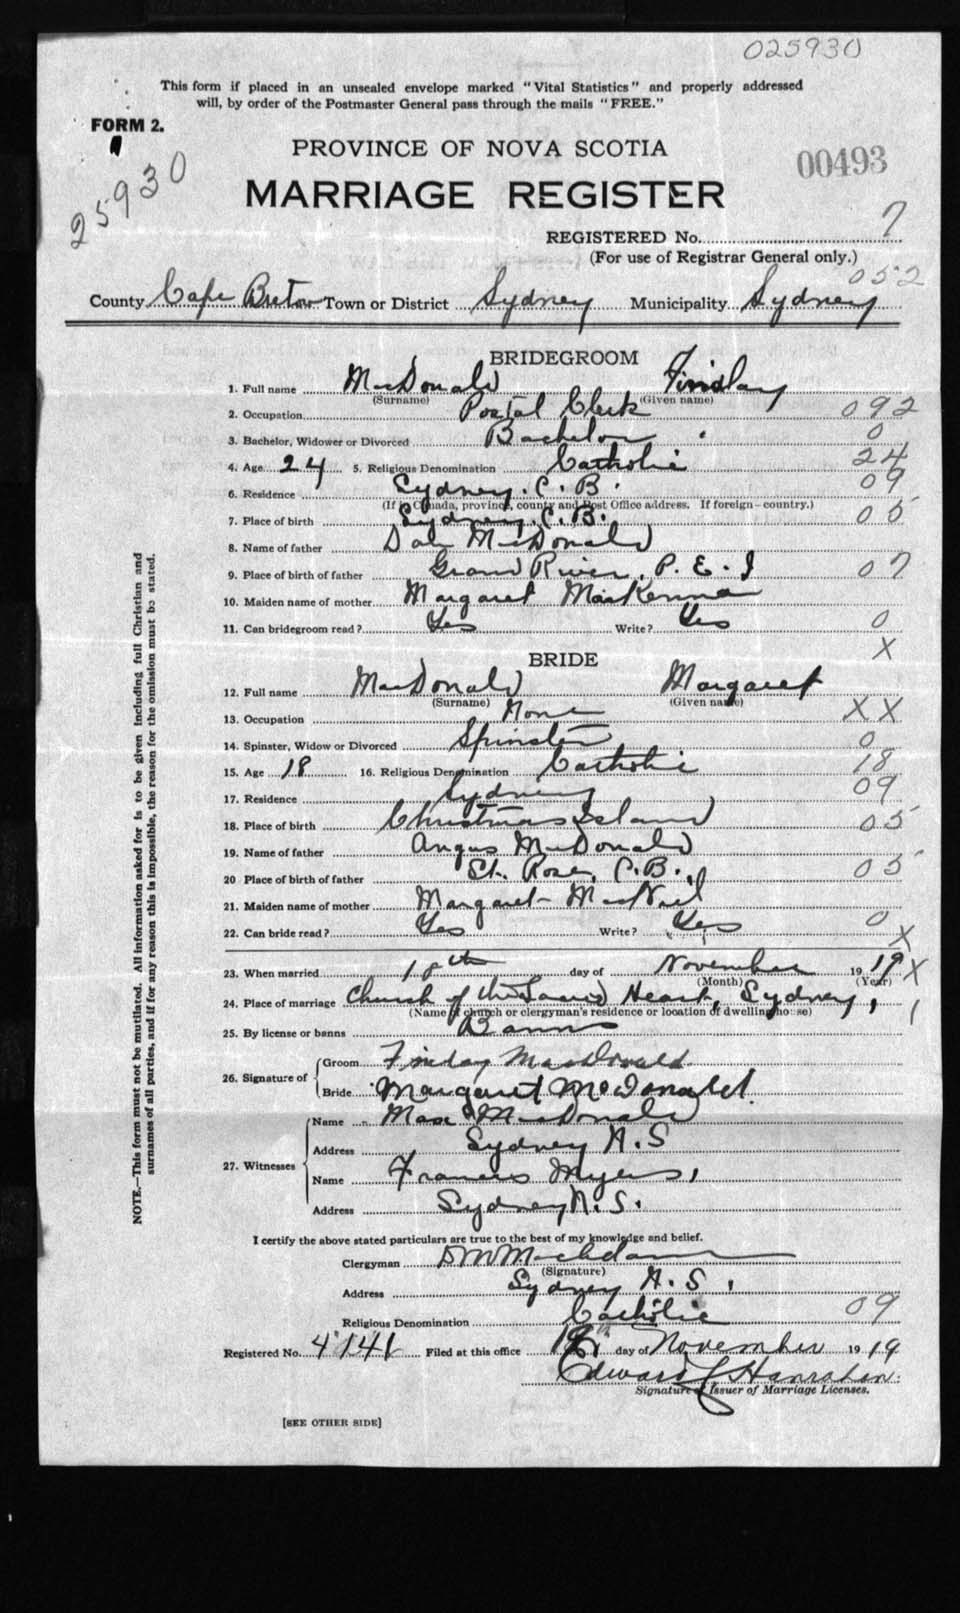 025930
This form if placed in an unsealed envelope marked "Vital Statistics" and properly addressed
will, by order of the Postmaster General pass through the mails "FREE."
FORM 2.
25930
PROVINCE OF NOVA SCOTIA
00493
MARRIAGE REGISTER
REGISTERED No. 7
(For use of Registrar General only.)
052
County Cape Breton Town or District Sydney Municipality Sydney
BRIDEGROOM
1. Full name MacDonald Findlay
(Surname) (Given name)
2. Occupation Postal Clerk 092
3. Bachelor, Widower or Divorced Bachelor 0
4. Age 24 5. Religious Denomination Catholic 24
6. Residence Sydney. C. B. 09
(If in Canada, province, county and Post Office address. If foreign-country.)
7. Place of birth Sydney, C. B. 05
8. Name of father Dan MacDonald
9. Place of birth of father Grand River, P. E. I 07
10. Maiden name of mother Margaret MacKenna
11. Can bridegroom read? Yes Write? Yes 0
X
BRIDE
12. Full name MacDonald Margaret
(Surname) (Given name)
13. Occupation None XX
14. Spinster, Widow or Divorced Spinster 0
15. Age 18 16. Religious Denomination Catholic 18
17. Residence Sydney 09
18. Place of birth Christmas Island 05
19. Name of father Angus MacDonald
20 Place of birth of father St. Rose, C.B., 05
21. Maiden name of mother Margaret MacNeil
22. Can bride read? Yes Write? Yes 0
X
23. When married 18th day of November 1919 X
(Month) (Year)
24. Place of marriage Church of the Sacred Heart, Sydney, 1
(Name of church or clergyman's residence or location of dwelling house)
25. By license or banns Banns
26. Signature of Groom Finday MacDonald
Bride Margaret McDonald.
27. Witnesses Name MacDonald
Address Sydney N.S
Name Francis Myers,
Address Sydney N.S.
I certify the above stated particulars are true to the best of my knowledge and belief.
Clergyman
(Signature)
Address Sydney N.S.
Religious Denomination Catholic 09
Registered No. 4141 Filed at this office day of November 1919
Edward L Hanrahan.
Signature of Issuer of Marriage Licenses.
[SEE OTHER SIDE]
NOTE.—This form must not be mutilated. All information asked for is to be given including full Christian and
surnames of all parties, and if for any reason this is impossible, the reason for the omission must be stated.